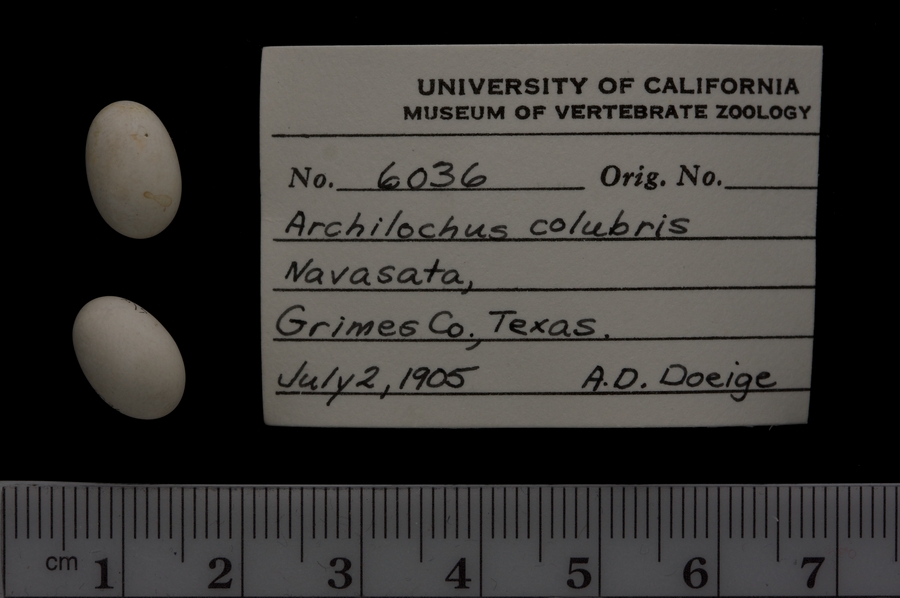 UNIVERSITY OF CALIFORNIA
MUSEUM OF VERTEBRATE ZOOLOGY
No. 6036 Orig. No.
Archilochus colubris
Navasata,
Grimes Co., Texas.
July 2, 1905 A.D. Doeige
cm 1 2 3 4 5 6 7